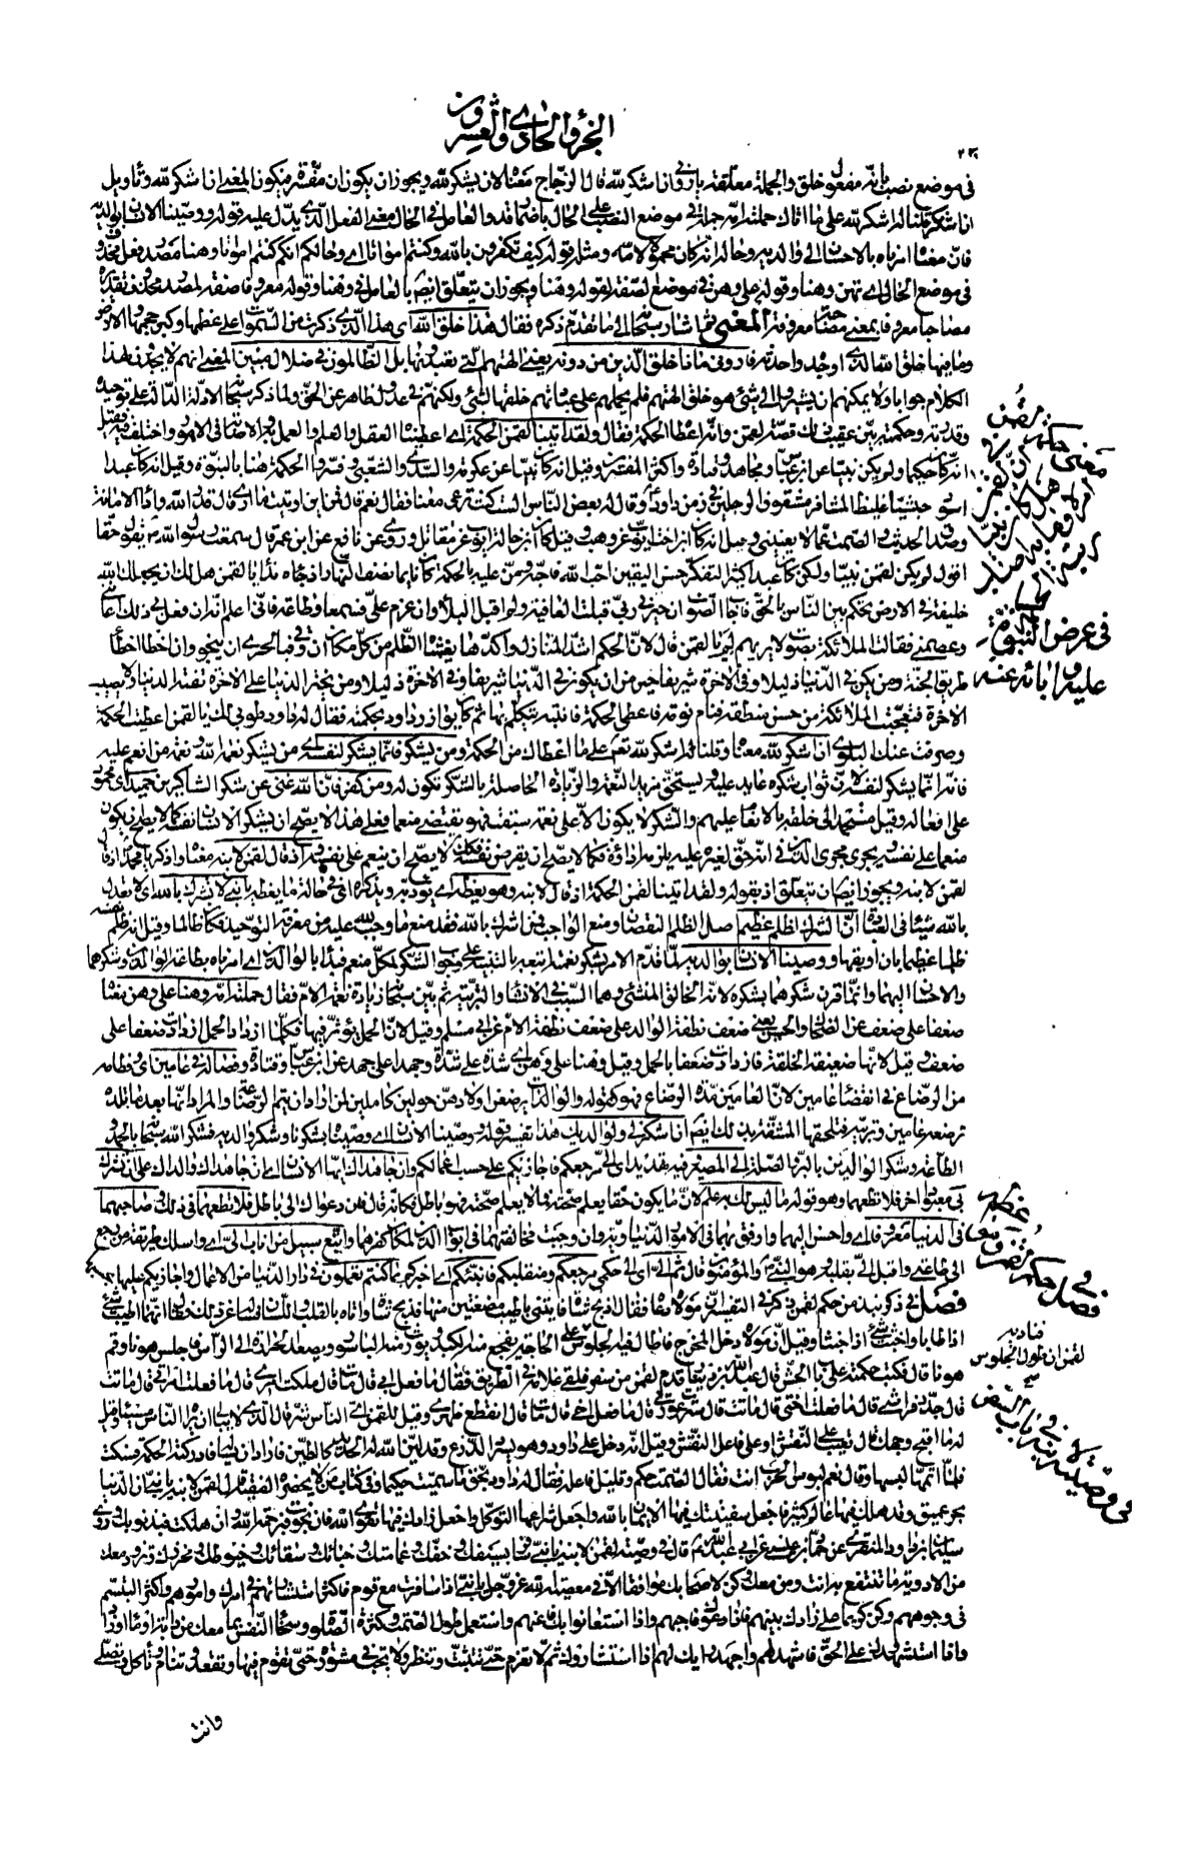 الجزؤ الحادي والعشرون
في موضع نصب بانه مفعول خلق والجملة معلقة باروني وان اشكر لله قال الزجاج معناه لان يشكر لله ويجوز ان يكون ان مفسرة فيكون المعنى اي اشكر لله وتاويل
ان اشكر قلنا له اشكر لله على ما اتاك حملته امه جملة في موضع النصب على الحال باضمار قد والعامل في الحال معنى الفعل الذي يدل عليه قوله ووصينا الانسان بوالديه
فان معناه امرناه بالاحسان الى والديه وحاله انه كان محمولا لامه ومثله قوله كيف تكفرون بالله وكنتم امواتا اي وحالكم انكم كنتم امواتا وهنا مصدر فعل محذوف
في موضع الحال اي تهن وهنا وقوله على وهن في موضع الصفة لقوله وهنا ويجوز ان يتعلق ايضا بالعامل في وهنا وقوله معروفا صفة لمصدر محذوف تقديره
مصاحبا معروفا بمعنى مصاحبة معروفة المعنى ثم اشار سبحانه الى ما تقدم ذكره فقال هذا خلق الله اي هذا الذي ذكرت من السموات على عظمها وكبر حجمها والارض
وما فيها خلق الله الذي اوجده واحدثه فاروني ماذا خلق الذين من دونه يعني الهتهم التي يعبدونها بل الظالمون في ضلال مبين المعنى انهم لا يجدون لهذا
الكلام جوابا ولا يمكنهم ان يشيروا الى شيء هو خلق الهتهم فلم يحملهم على عبادتهم خلقها لشيء ولكنهم في عدول ظاهر عن الحق ولما ذكر سبحانه الادلة الدالة على توحيده
وقدرته وحكمته بين عقيب ذلك قصة لقمن وانه اعطاه الحكمة فقال ولقد اتينا لقمن الحكمة اي اعطيناه العقل والعلم والعمل به والاصابة في الامور واختلف فيه فقيل
انه كان حكيما ولم يكن نبيا عن ابن عباس ومجاهد وقتادة واكثر المفسرين وقيل انه كان نبيا عن عكرمة والسدي والشعبي وفسروا الحكمة هنا بالنبوة وقيل انه كان عبدا
اسود حبشيا غليظ المشافر مشقوق الرجلين في زمن داود وقال له بعض الناس الست كنت ترعى معنا فقال نعم قال فمن اين اوتيت ما ارى قال قدر الله واداء الامانة
وصدق الحديث والصمت عما لا يعنيني وقيل انه كان ابن اخت ايوب عن وهب وقيل كان ابن خالة ايوب عن مقاتل وروي عن نافع عن ابن عمر قال سمعت رسول الله ص يقول حقا
اقول لم يكن لقمن نبيا ولكن كان عبدا كثير التفكر حسن اليقين احب الله فاحبه ومن عليه بالحكمة كان نائما نصف النهار اذ جاءه نداء يا لقمن هل لك ان يجعلك الله
خليفة في الارض تحكم بين الناس بالحق فاجاب الصوت ان خيرني ربي قبلت العافية ولم اقبل البلاء وان عزم علي فسمعا وطاعة فاني اعلم انه ان فعل بي ذلك اعانني
وعصمني فقالت الملائكة بصوت لا يريهم لم يا لقمن قال لان الحكم اشد المنازل واكدها يغشاه الظلم من كل مكان ان وقي فبالحري ان ينجو وان اخطا اخطا
طريق الجنة ومن يكن في الدنيا ذليلا وفي الاخرة شريفا خير من ان يكون في الدنيا شريفا وفي الاخرة ذليلا ومن يختر الدنيا على الاخرة تفته الدنيا ولا يصيب
الاخرة فتعجبت الملائكة من حسن منطقه فنام نومة فاعطي الحكمة فانتبه يتكلم بها ثم كان يوازر داود بحكمته فقال له داود طوبى لك يا لقمن اعطيت الحكمة
وصرفت عنك البلوى ان اشكر لله معناه وقلنا له اشكر لله تعالى على ما اعطاك من الحكمة ومن يشكر فانما يشكر لنفسه اي من يشكر نعمة الله ونعمة من انعم عليه
فانه انما يشكر لنفسه لان ثواب شكره عايد عليه ويستحق مزيد النعمة والزيادة الحاصلة بالشكر تكون له ومن كفر فان الله غني عن شكر الشاكرين حميد اي محمود
على افعاله وقيل مستحمد الى خلقه بالانعام عليهم والشكر لا يكون الا على نعمة سبقت فهو يقتضي منعما فعلى هذا لا يصح ان يشكر الانسان نفسه كما لا يصح ان يكون
منعما على نفسه ويجري مجرى الدين في انه حق لغيره عليه يلزمه اداؤه فكما لا يصح ان يقرض نفسه فكذلك لا يصح ان ينعم على نفسه واذ قال لقمن لابنه معناه واذكر يا محمد اذ قال
لقمن لابنه ويجوز ايضا ان يتعلق اذ بقوله ولقد اتينا لقمن الحكمة اذ قال لابنه وهو يعظه اي يؤدبه ويذكره اي في حال ما يعظه يا بني لا تشرك بالله اي لا تعدل
بالله شيئا في العبادة ان الشرك لظلم عظيم اصل الظلم النقصان ومنع الواجب فمن اشرك بالله فقد منع ما وجب لله عليه من معرفة التوحيد فكان ظالما وقيل انه ظلم نفسه
ظلما عظيما بان اوبقها ووصينا الانسان بوالديه لما قدم الامر بشكر نعمته اتبعه بالتنبيه على وجوب الشكر لكل منعم فبدا بالوالدين اي امرناه بطاعة الوالدين وشكرهما
والاحسان اليهما وانما قرن شكرهما بشكره لانه الخالق المنشئ وهما السبب في الانشاء والتربية ثم بين سبحانه زيادة نعمة الام فقال حملته امه وهنا على وهن معناه
ضعفا على ضعف عن الضحاك والحسن يعني ضعف نطفة الوالد على ضعف نطفة الام عن ابي مسلم وقيل لان الحمل يؤثر فيها فكلما ازداد الحمل ازدادت ضعفا على
ضعف وقيل لانها ضعيفة الخلقة فازدادت ضعفا بالحمل وقيل وهنا على وهن اي شدة على شدة وجهدا على جهد عن ابن عباس وقتادة وفصاله في عامين اي وفطامه
من الرضاع في انقضاء عامين لان العامين مدة الرضاع فهو كقوله والوالدات يرضعن اولادهن حولين كاملين لمن اراد ان يتم الرضاعة والمراد انها بعد ما تلده
ترضعه عامين وتربيه فتلحقها المشقة بذلك ايضا ان اشكر لي ولوالديك هذا تفسير قوله ووصينا الانسان اي وصيناه بشكرنا وشكر والديه فشكر الله سبحانه بالحمد و
الطاعة وشكر الوالدين بالبر والصلة الي المصير فيه تهديد اي الي مرجعكم فاجازيكم على حسب اعمالكم وان جاهداك ايها الانسان اي ان جاهداك والداك على ان تشرك
بي معبودا اخر فلا تطعهما وهو قوله ما ليس لك به علم لان ما يكون حقا يعلم صحته فما لا يعلم صحته فهو باطل فكانه قال فان دعواك الى باطل فلا تطعهما في ذلك وصاحبهما
في الدنيا معروفا اي واحسن اليهما وارفق بهما في الامور الدنيوية وان وجبت مخالفتهما في ابواب الدين لمكان كفرهما واتبع سبيل من اناب الي اي واسلك طريقة من رجع
الى طاعتي واقبل الي بقلبه وهو النبي والمؤمنون ثم قال ثم الي اي الى حكمي مرجعكم ومنقلبكم فانبئكم اي اخبركم بما كنتم تعملون في دار الدنيا من الاعمال واجازيكم عليها بحسبه
فصل في ذكر نبذ من حكم لقمن ذكر في التفسير ان مولاه دعاه فقال اذبح شاة فاتني باطيب مضغتين منها فذبح شاة واتاه بالقلب واللسان فساله عن ذلك فقال انهما اطيب شيء
اذا طابا واخبث شيء اذا خبثا وقيل ان مولاه دخل المخرج فاطال فيه الجلوس فناداه لقمن ان طول الجلوس على الحاجة يفجع منه الكبد ويورث منه الباسور ويصعد الحرارة الى الراس فاجلس هونا وقم
هونا قال فكتب حكمته على باب الحش قال عبد الله بن دينار قدم لقمن من سفر فلقي غلامه في الطريق فقال ما فعل ابي قال مات قال ملكت امري قال ما فعلت امراتي قال ماتت
قال جدد فراشي قال ما فعلت اختي قال ماتت قال سترت عورتي قال ما فعل اخي قال مات قال انقطع ظهري وقيل للقمن اي الناس شر قال الذي لا يبالي ان يراه الناس مسيئا وقيل
له ما اقبح وجهك قال تعيب على النقش او على فاعل النقش وقيل انه دخل على داود وهو يسرد الدرع وقد لين الله له الحديد كالطين فاراد ان يساله فادركته الحكمة فسكت
فلما اتمها لبسها وقال نعم لبوس الحرب انت فقال الصمت حكم وقليل فاعله فقال له داود بحق ما سميت حكيما وفي كتاب من لا يحضره الفقيه قال لقمن لابنه يا بني ان الدنيا
بحر عميق وقد هلك فيها عالم كثير فاجعل سفينتك فيها الايمان بالله واجعل شراعها التوكل واجعل زادك فيها تقوى الله فان نجوت فبرحمة الله وان هلكت فبذنوبك وروى
سليمان بن داود المنقري عن حماد بن عيسى عن ابي عبد الله قال في وصية لقمن لابنه يا بني سافر بسيفك وخفك وعمامتك وخبائك وسقائك وخيوطك ومخرزك وتزود معك
من الادوية ما تنتفع به انت ومن معك وكن لاصحابك موافقا الا في معصية الله عز وجل يا بني اذا سافرت مع قوم فاكثر استشارتهم في امرك وامورهم واكثر التبسم
في وجوههم وكن كريما على زادك بينهم فاذا دعوك فاجبهم واذا استعانوا بك فاعنهم واستعمل طول الصمت وكثرة الصلوة وسخاء النفس بما معك من دابة او ماء او زاد
واذا استشهدوك على الحق فاشهد لهم واجهد رايك لهم اذا استشاروك ثم لا تعزم حتى تتثبت وتنظر ولا تجب في مشورة حتى تقوم فيها وتقعد وتنام وتاكل وتصلي
وانت
معنى حكمة لقمن
في ان لقمن
هل كان نبيا
في عرض النبوة
عليه وابائه عنه
فصل في حكم لقمن ومواعظه
فناداه
لقمن ان طول الجلوس
في وصيته لابنه باب السفر